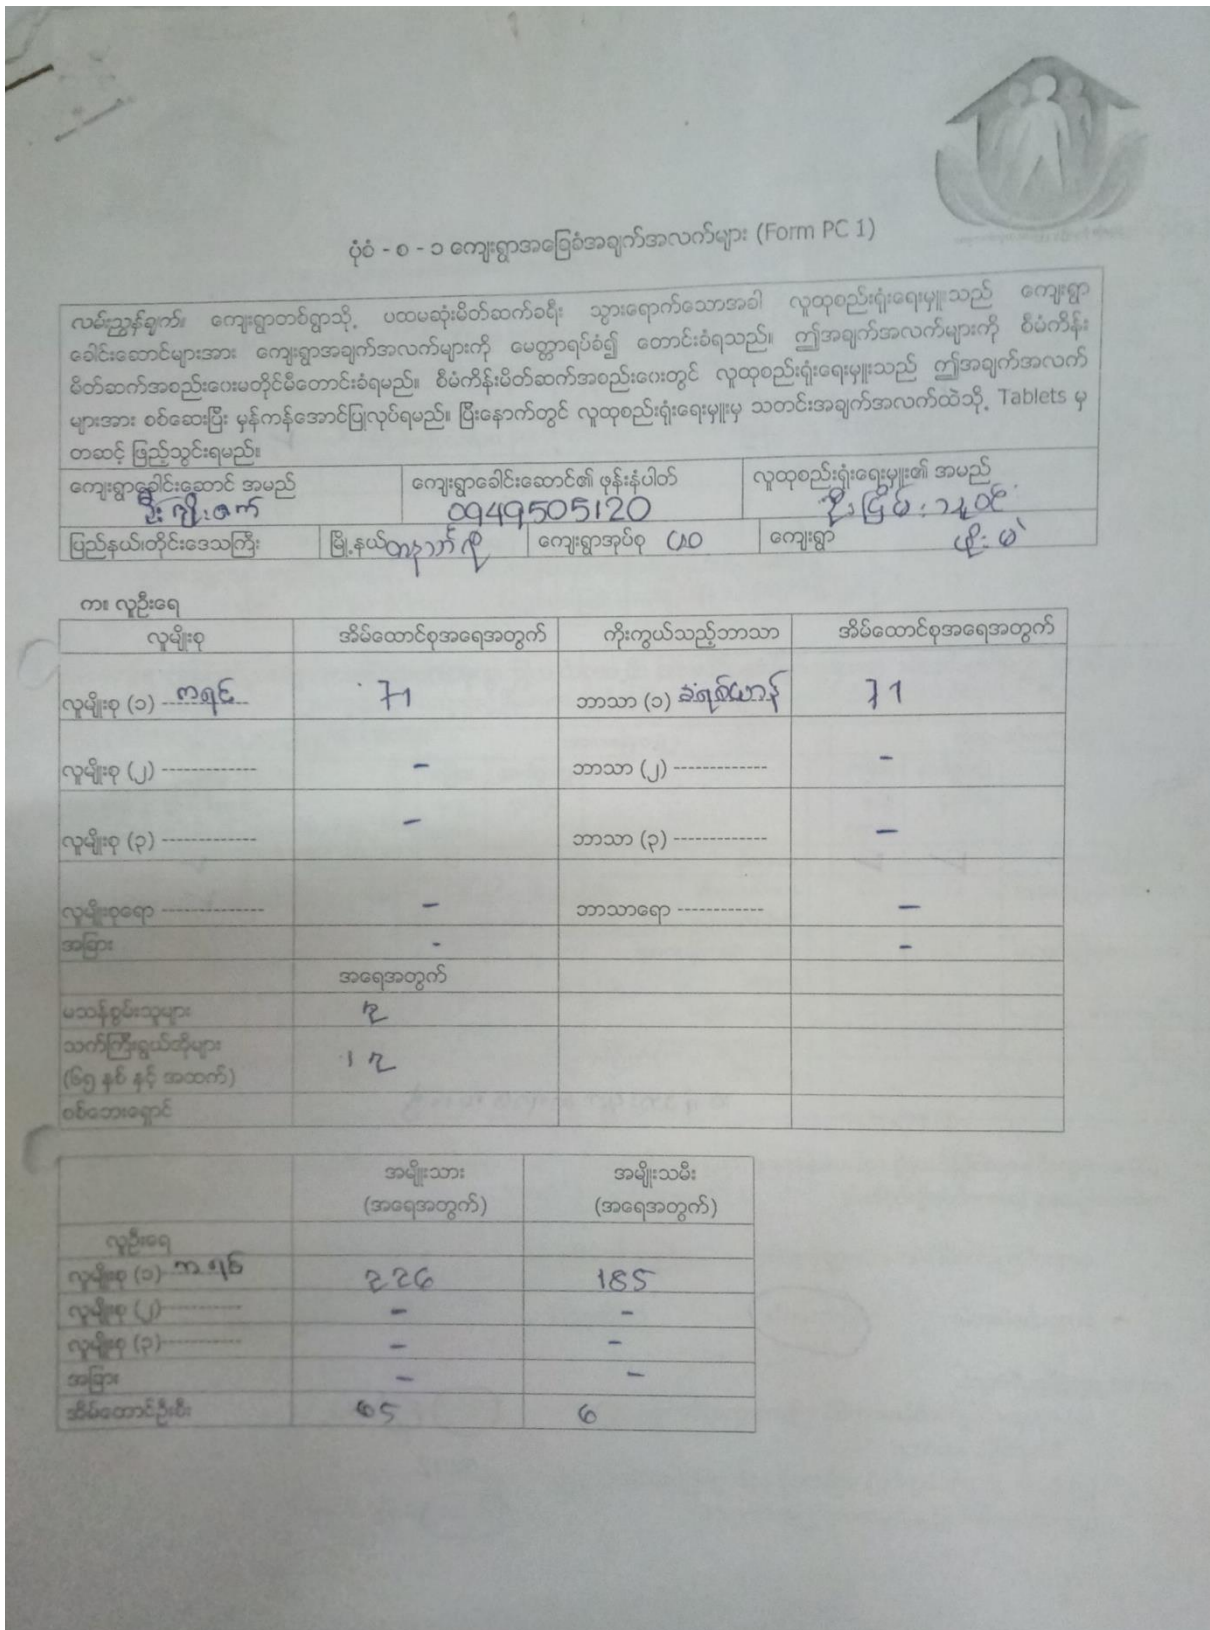 ပုံစံ - စ - ၁ ကျေးရွာအခြေခံအချက်အလက်များ (Form PC 1)
လမ်းညွှန်ချက်။ ကျေးရွာတစ်ရွာသို့ ပထမဆုံးမိတ်ဆက်ခရီး သွားရောက်သောအခါ လူထုစည်းရုံးရေးမှူးသည် ကျေးရွာ
ခေါင်းဆောင်များအား ကျေးရွာအချက်အလက်များကို မေတ္တာရပ်ခံ၍ တောင်းခံရသည်။ ဤအချက်အလက်များကို စီမံကိန်း
မိတ်ဆက်အစည်းဝေးမတိုင်မီတောင်းခံရမည်။ စီမံကိန်းမိတ်ဆက်အစည်းဝေးတွင် လူထုစည်းရုံးရေးမှူးသည် ဤအချက်အလက်
များအား စစ်ဆေးပြီး မှန်ကန်အောင်ပြုလုပ်ရမည်။ ပြီးနောက်တွင် လူထုစည်းရုံးရေးမှူးမှ သတင်းအချက်အလက်ထဲသို့ Tablets မှ
တဆင့် ဖြည့်သွင်းရမည်။
ကျေးရွာခေါင်းဆောင် အမည် ကျေးရွာခေါင်းဆောင်၏ ဖုန်းနံပါတ် လူထုစည်းရုံးရေးမှူး၏ အမည်
0949505120
ပြည်နယ်၊တိုင်းဒေသကြီး မြို့နယ် ကျေးရွာအုပ်စု ကျေးရွာ
က။ လူဦးရေ
လူမျိုးစု အိမ်ထောင်စုအရေအတွက် ကိုးကွယ်သည့်ဘာသာ အိမ်ထောင်စုအရေအတွက်
လူမျိုးစု (၁) ကရင် 71 ဘာသာ (၁) ခရစ်ယာန် 71
လူမျိုးစု (၂) ------------- - ဘာသာ (၂) ------------- -
လူမျိုးစု (၃) ------------- - ဘာသာ (၃) ------------- -
လူမျိုးစုရော -------------- - ဘာသာရော ------------ -
အခြား - -
အရေအတွက်
မသန်စွမ်းသူများ 2
သက်ကြီးရွယ်အိုများ
(၆၅ နှစ် နှင့် အထက်) 12
စစ်ဘေးရှောင်
အမျိုးသား အမျိုးသမီး
(အရေအတွက်) (အရေအတွက်)
လူဦးရေ
လူမျိုးစု (၁) ကရင် 226 185
လူမျိုးစု (၂)----------- - -
လူမျိုးစု (၃)----------- - -
အခြား - -
အိမ်ထောင်ဦးစီး 65 6